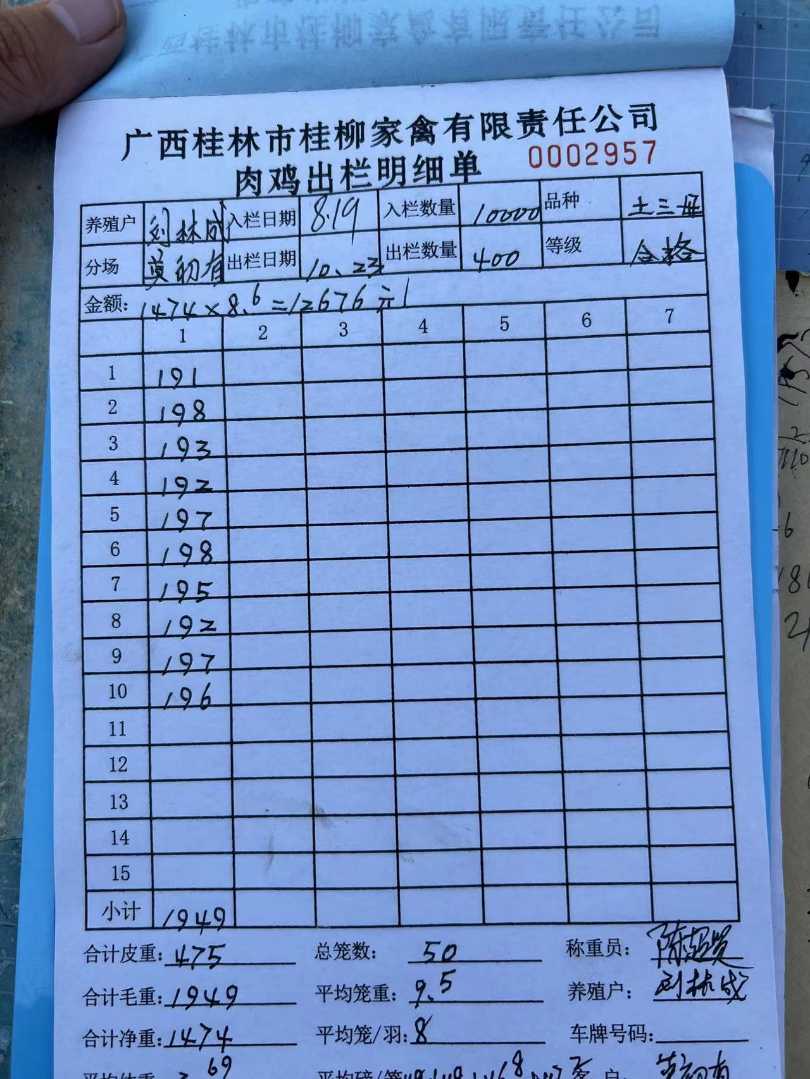 广西桂林市桂柳家禽有限责任公司
肉鸡出栏明细单 0002957
养殖户 刘林成 入栏日期 8.19 入栏数量 10000 品种 土三母
分场 莫初有 出栏日期 10.23 出栏数量 400 等级 合格
金额: 1474×8.6=12676元
1 2 3 4 5 6 7
1 191
2 198
3 193
4 192
5 197
6 198
7 195
8 192
9 197
10 196
11
12
13
14
15
小计 1949
合计皮重: 475 总笼数: 50 称重员:
合计毛重: 1949 平均笼重: 9.5 养殖户: 刘林成
合计净重: 1474 平均笼/羽: 8 车牌号码: